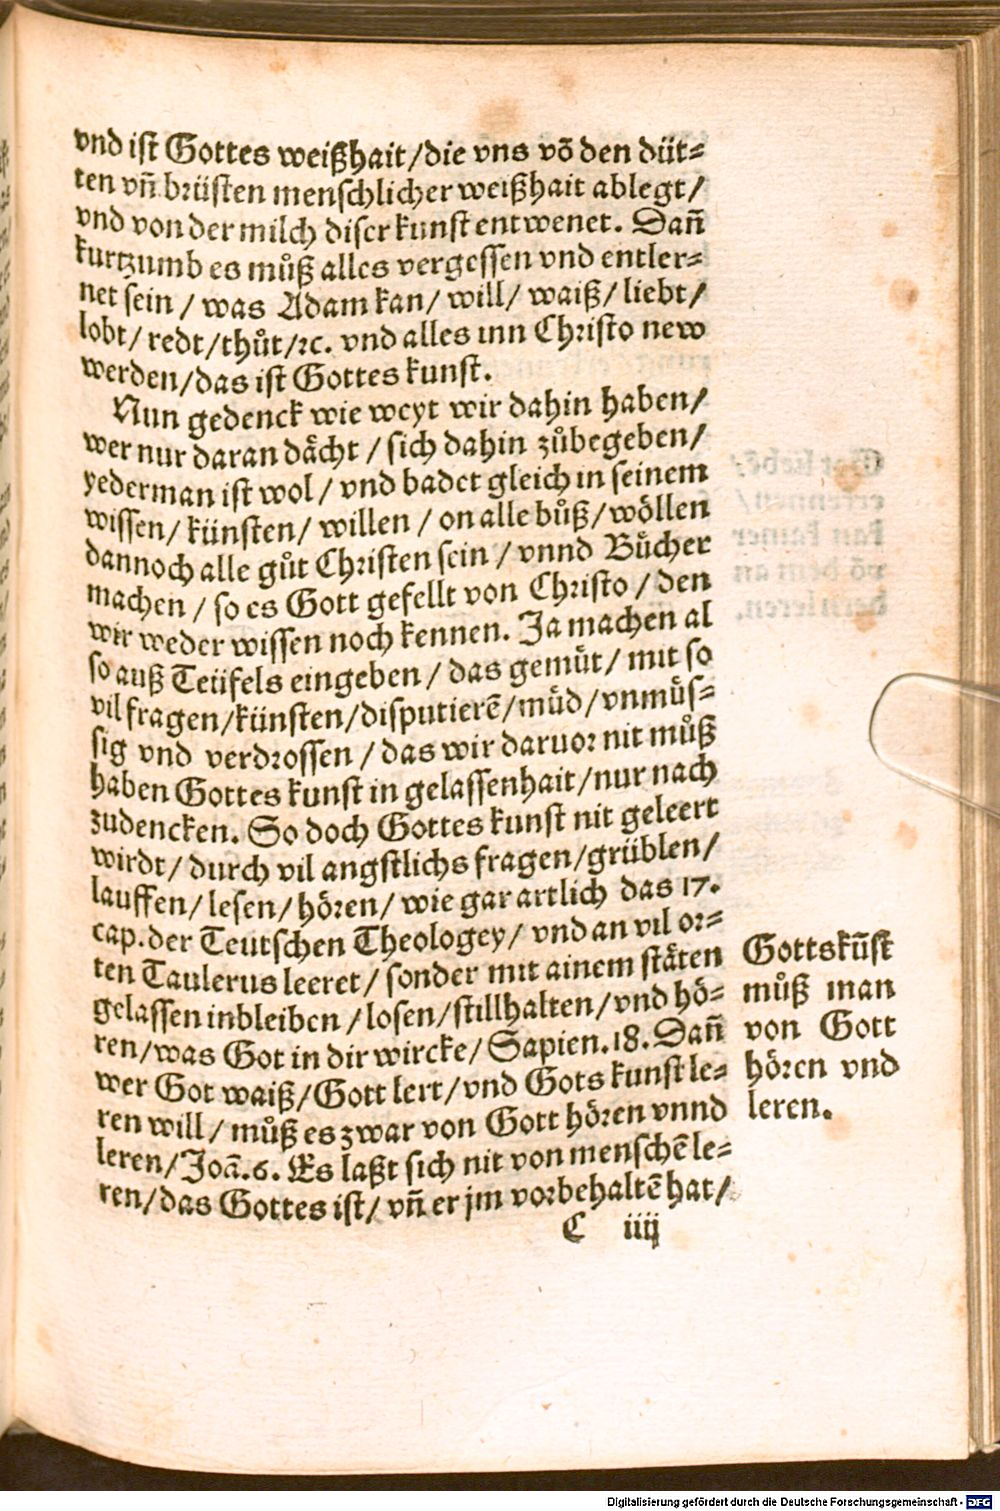 vnd ist Gottes weißhait/die vns võ den düt⸗
ten vñ brüsten menschlicher weißhait ablegt/
vnd von der milch diser kunst entwenet. Dañ
kurtzumb es můß alles vergessen vnd entler⸗
net sein / was Adam kan/ will/ waiß/ liebt/
lobt/ redt/thůt/ꝛc. vnd alles inn Christo new
werden/das ist Gottes kunst.
Nun gedenck wie weyt wir dahin haben/
wer nur daran dächt / sich dahin zůbegeben/
yederman ist wol / vnd badet gleich in seinem
wissen/ künsten/ willen / on alle bůß/wöllen
dannoch alle gůt Christen sein / vnnd Bücher
machen / so es Gott gefellt von Christo / den
wir weder wissen noch kennen. Ja machen al
so auß Teüfels eingeben / das gemüt/ mit so
vil fragen/künsten/disputierẽ/müd/vnmüs⸗
sig vnd verdrossen / das wir daruor nit můß
haben Gottes kunst in gelassenhait/nur nach
zudencken. So doch Gottes kunst nit geleert
wirdt/ durch vil angstlichs fragen/grüblen/
lauffen/lesen/hören/ wie gar artlich das 17.
cap.der Teutschen Theologey/ vnd an vil or⸗
ten Taulerus leeret / sonder mit ainem stäten
gelassen inbleiben /losen/stillhalten/vnd hö⸗
ren/was Got in dir wircke/ Sapien.18. Dañ
wer Got waiß/Gott lert/vnd Gots kunst le⸗
ren will / můß es zwar von Gott hören vnnd
leren/Joã.6. Es laßt sich nit von menschẽ le⸗
ren/das Gottes ist/ vñ er jm vorbehaltẽ hat/
C iiij
Gottskũst
můß man
von Gott
hören vnd
leren.
Digitalisierung gefördert durch die Deutsche Forschungsgemeinschaft - DFG